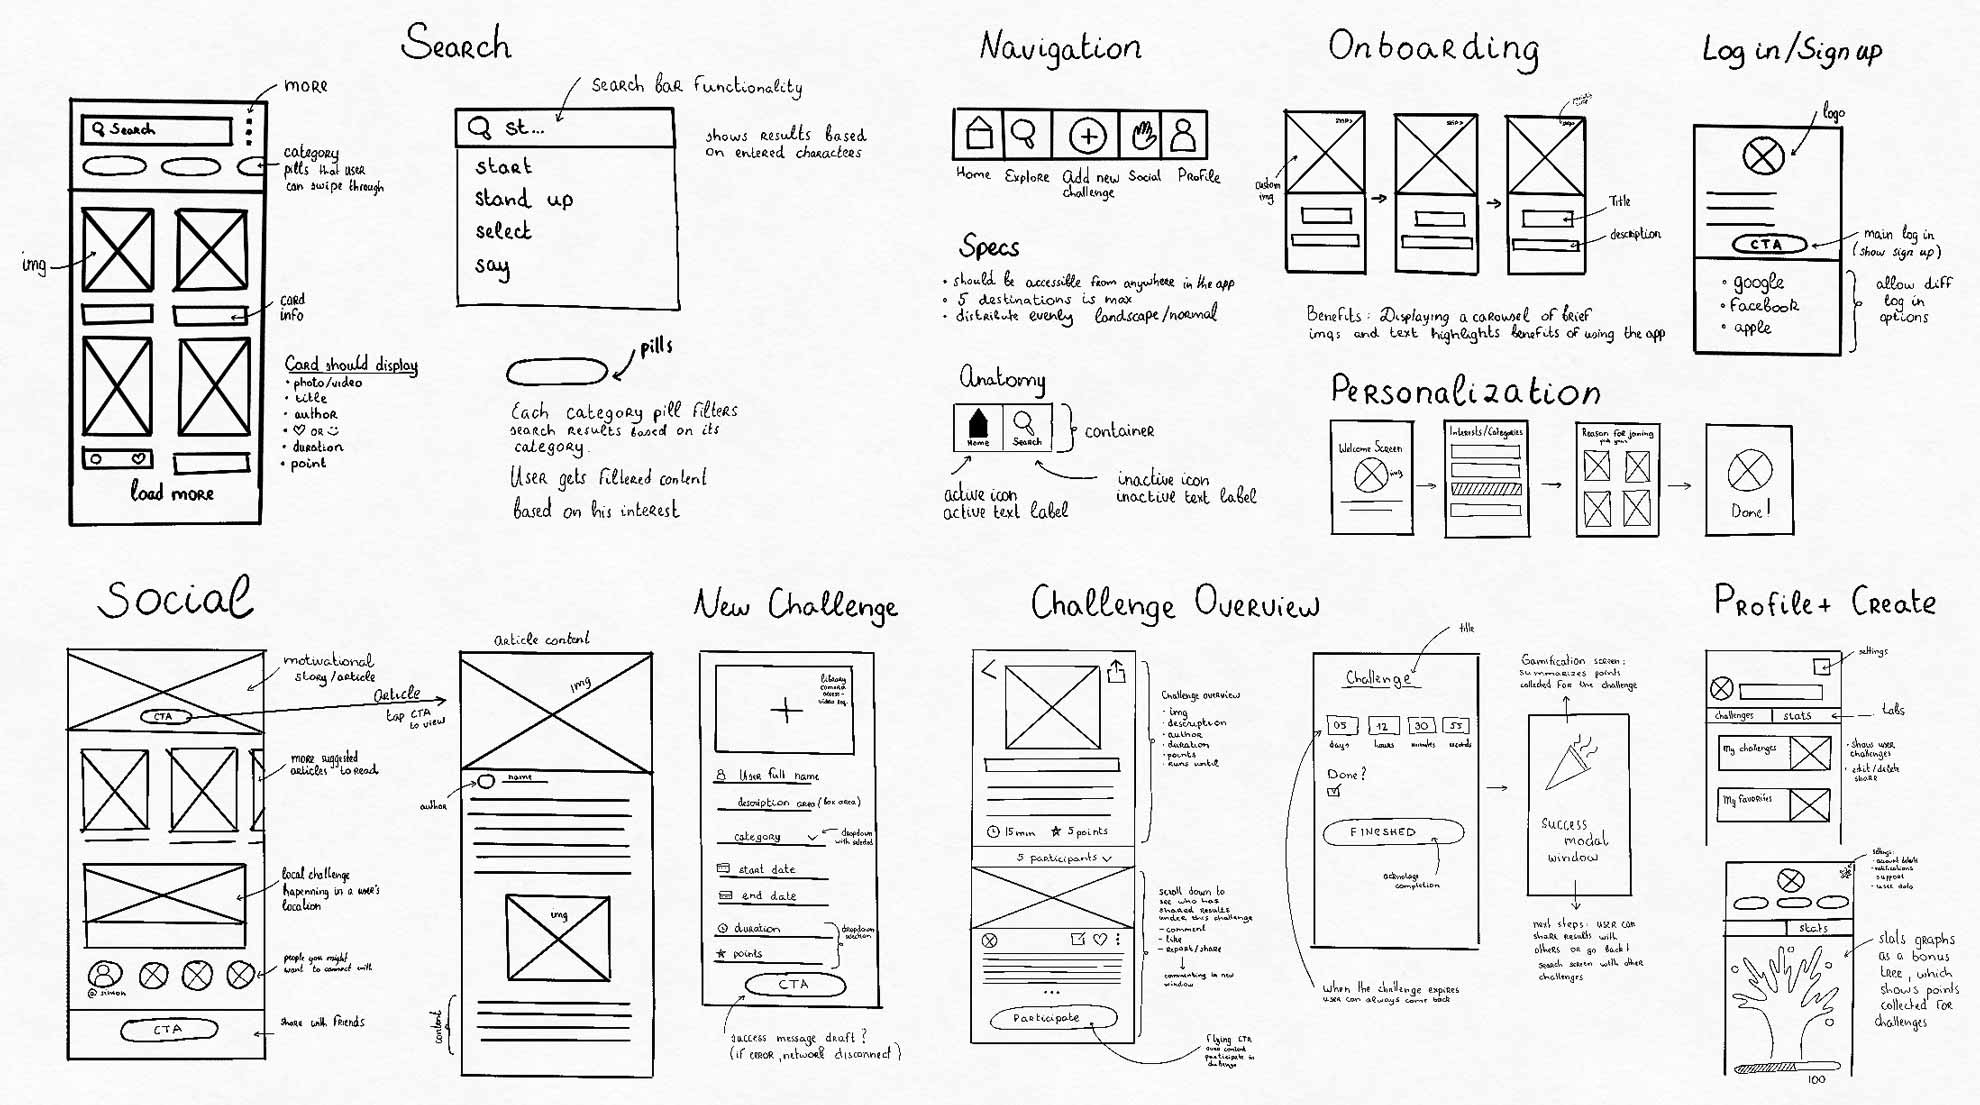 Search
more
Search
category
pills that user
can swipe through
img
card
info
Card should display
• photo/video
• title
• author
• ♡ or ☺
• duration
• point
load more
search bar functionality
st...
start
stand up
select
say
shows results based
on entered characters
pills
Each category pill filters
search results based on its
category.
User gets filtered content
based on his interest
Navigation
Home
Explore
Add new
challenge
Social
Profile
Specs
• should be accessible from anywhere in the app
• 5 destinations is max
• distribute evenly landscape/normal
Anatomy
Home
Search
container
active icon
active text label
inactive icon
inactive text label
Onboarding
skip>
skip>
custom
img
Title
description
Benefits: Displaying a carousel of brief
imgs and text highlights benefits of using the app
Log in/Sign up
logo
CTA
main log in
(show sign up)
• google
• Facebook
• apple
allow diff
log in
options
Personalization
Welcome Screen
img
Interests/Categories
Reason for joining
Done!
Social
motivational
story/article
CTA
article
tap CTA
to view
more suggested
articles to read
local challenge
hapenning in a user's
location
people you might
want to connect with
@simon
CTA
share with friends
article content
img
name
author
img
content
New Challenge
library
camera
access
User full name
description area (box area)
category
dropdown
with selected
start date
end date
duration
points
dropdown
selection
CTA
success message draft?
(if error, network disconnect)
Challenge Overview
Challenge overview
• img
• description
• author
• duration
• points
• runs until
15 min
5 points
5 participants
scroll down to
see who has
shared results
under this challenge
– comment
– like
– report/share
commenting in new
window
...
Participate
Flying CTA
over content
participate in
challenge
title
Challenge
05
12
30
55
days
hours
minutes
seconds
Done?
FINESHED
acknolage
completion
When the challenge expires
user can always come back
Gamification screen:
summarizes points
collected for the challenge
success
modal
window
next steps: user can
share results with
others or go back/
search screen with other
challenges
Profile+ Create
settings
challenges
stats
tabs
My challenges
• show user
challenges
• edit/delete
share
My favorites
settings:
• account details
• notifications
support
• user data
stats
stats graphs
as a bonus
tree, which
shows points
collected for
challenges
100